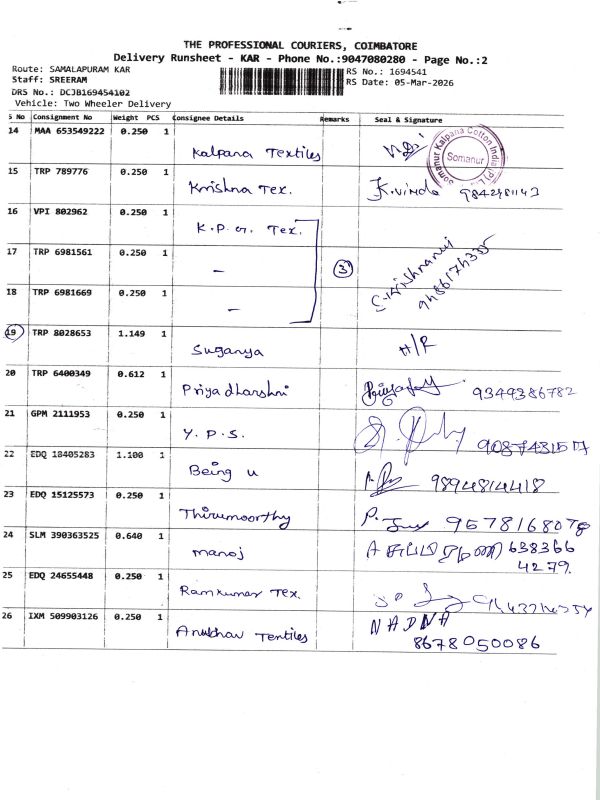 THE PROFESSIONAL COURIERS, COIMBATORE
Delivery Runsheet - KAR - Phone No.:9047080280 - Page No.:2
Route: SAMALAPURAM KAR
Staff: SREERAM
DRS No.: DCJB169454102
Vehicle: Two Wheeler Delivery
RS No.: 1694541
RS Date: 05-Mar-2026
S No Consignment No Weight PCS Consignee Details Remarks Seal & Signature
14 MAA 653549222 0.250 1 Kalpana Textiles
Somanur Kalpana Cotton India (P) Somanur
15 TRP 789776 0.250 1 Krishna Tex. K.vinda
16 VPI 802962 0.250 1 K.P.G. Tex.
17 TRP 6981561 0.250 1 – 3
18 TRP 6981669 0.250 1 –
19 TRP 8028653 1.149 1 Suganya H/R
20 TRP 6400349 0.612 1 Priyadharshni 9349386782
21 GPM 2111953 0.250 1 Y.P.S.
22 EDQ 18405283 1.100 1 Being u 9894814418
23 EDQ 15125573 0.250 1 Thirumoorthy P. 9578168078
24 SLM 390363525 0.640 1 manoj 638366
4279.
25 EDQ 24655448 0.250 1 Ramkumar Tex.
26 IXM 509903126 0.250 1 Anubhav Tentiles NADNA
8678050086